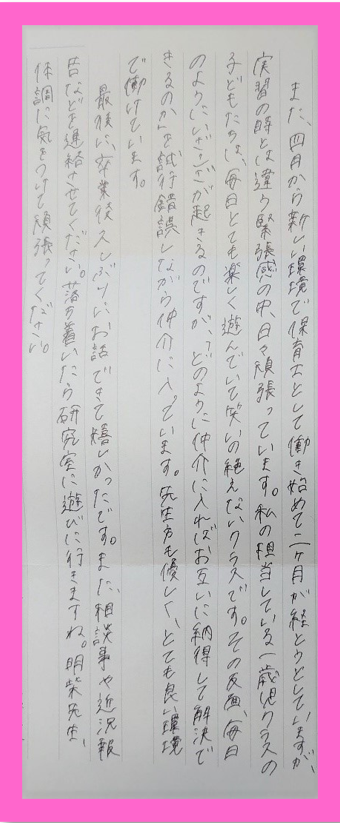 また、四月から新しい環境で保育士として働き始めて二ヶ月が経とうとしていますが、
実習の時とは違う緊張感の中、日々頑張っています。私の担当している一歳児クラスの
子どもたちは、毎日とても楽しく遊んでいて笑いの絶えないクラスです。その反面、毎日
のようにいざこざが起きるのですが、「どのように仲介に入ればお互いに納得して解決で
きるのか」を試行錯誤しながら仲介に入っています。先生方も優しく、とても良い環境
で働けています。
最後に、卒業後久しぶりにお話できて嬉しかったです。また、相談事や近況報
告などを連絡させてください。落ち着いたら研究室に遊びに行きますね。明柴先生、
体調に気をつけて頑張ってください。